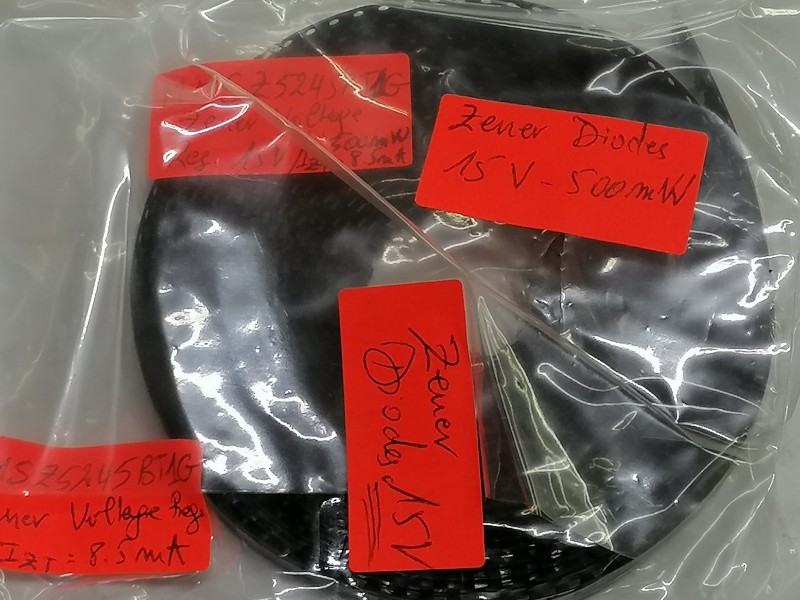 SZ5245BT1G
Zener Voltage
500mW
Reg. 15V / IZT: 8.5mA
Zener Diodes
15 V - 500mW
Zener
Diodes 15V
1SZ5245BT1G
ner Voltage Reg.
IZT = 8.5mA